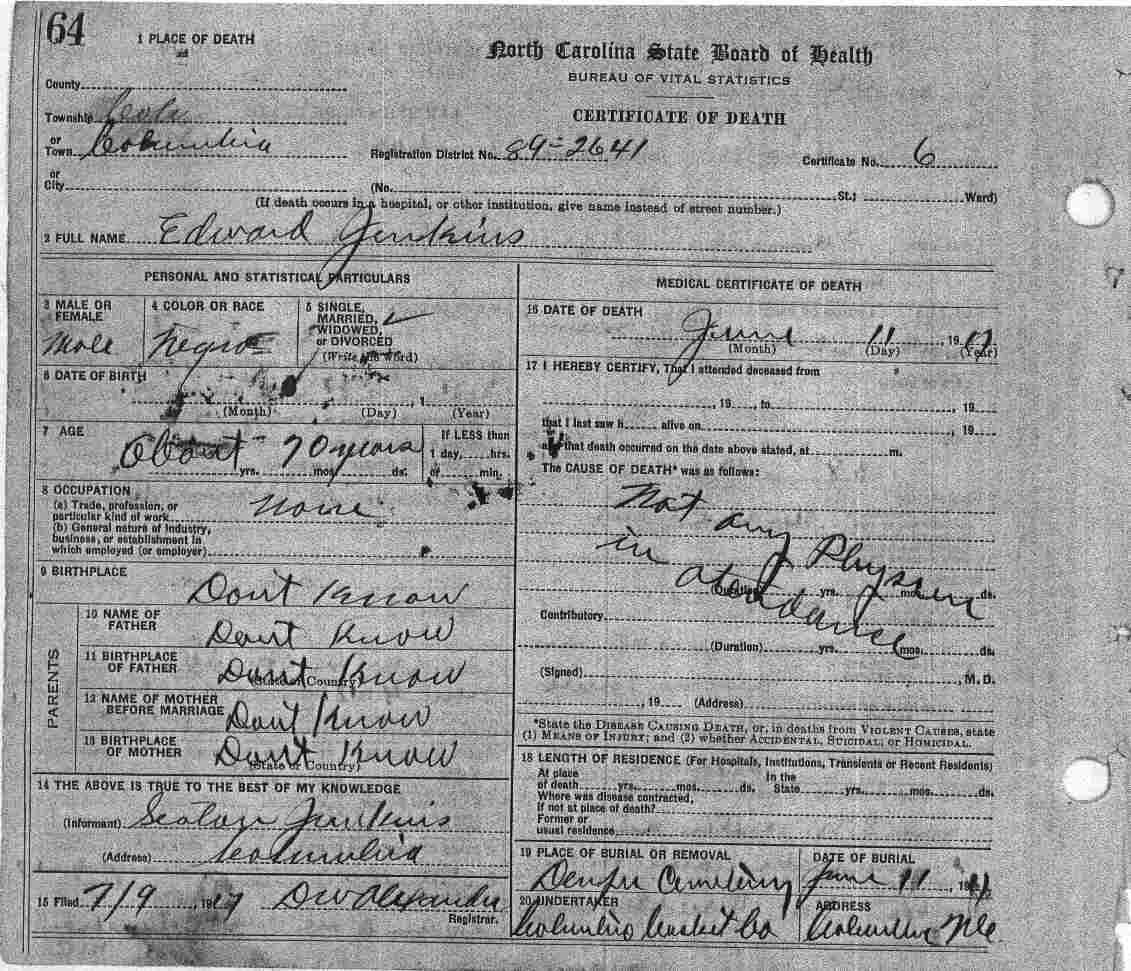 64
1 PLACE OF DEATH
North Carolina State Board of Health
BUREAU OF VITAL STATISTICS
CERTIFICATE OF DEATH
County
Township
or Town Columbia
Registration District No. 89-2641
Certificate No. 6
or City (No. St.; Ward)
(If death occurs in a hospital, or other institution, give name instead of street number.)
2 FULL NAME Edward Jenkins
PERSONAL AND STATISTICAL PARTICULARS
3 MALE OR FEMALE
Male
4 COLOR OR RACE
Negro
5 SINGLE, MARRIED, WIDOWED, or DIVORCED
(Write the word)
6 DATE OF BIRTH
(Month) (Day) , 1 (Year)
7 AGE
About 70 years
yrs. mos. ds.
If LESS than
1 day, hrs.
or min.
8 OCCUPATION
(a) Trade, profession, or
particular kind of work None
(b) General nature of industry,
business, or establishment in
which employed (or employer)
9 BIRTHPLACE
Dont Know
PARENTS
10 NAME OF FATHER
Dont Know
11 BIRTHPLACE OF FATHER
(State or Country)
Dont Know
12 NAME OF MOTHER BEFORE MARRIAGE
Dont Know
13 BIRTHPLACE OF MOTHER
(State or Country)
Dont Know
14 THE ABOVE IS TRUE TO THE BEST OF MY KNOWLEDGE
(Informant) Jenkins
(Address) Columbia
15 Filed 7/9, 1917 DW Alexander
Registrar.
MEDICAL CERTIFICATE OF DEATH
16 DATE OF DEATH
June 11 1917
(Month) (Day) (Year)
17 I HEREBY CERTIFY, That I attended deceased from
, 19 , to , 19
that I last saw h alive on , 19
and that death occurred on the date above stated, at m.
The CAUSE OF DEATH* was as follows:
Not any Physsen
in atendance
(Duration) yrs. mos. ds.
Contributory
(Duration) yrs. mos. ds.
(Signed) , M. D.
, 19 (Address)
*State the DISEASE CAUSING DEATH, or, in deaths from VIOLENT CAUSES, state
(1) MEANS OF INJURY; and (2) whether ACCIDENTAL, SUICIDAL, or HOMICIDAL.
18 LENGTH OF RESIDENCE (For Hospitals, Institutions, Transients or Recent Residents)
At place of death yrs. mos. ds. In the State yrs. mos. ds.
Where was disease contracted,
If not at place of death?
Former or
usual residence
19 PLACE OF BURIAL OR REMOVAL
Cemetery
DATE OF BURIAL
June 11, 19
20 UNDERTAKER
Columbia Casket Co
ADDRESS
Columbia NC